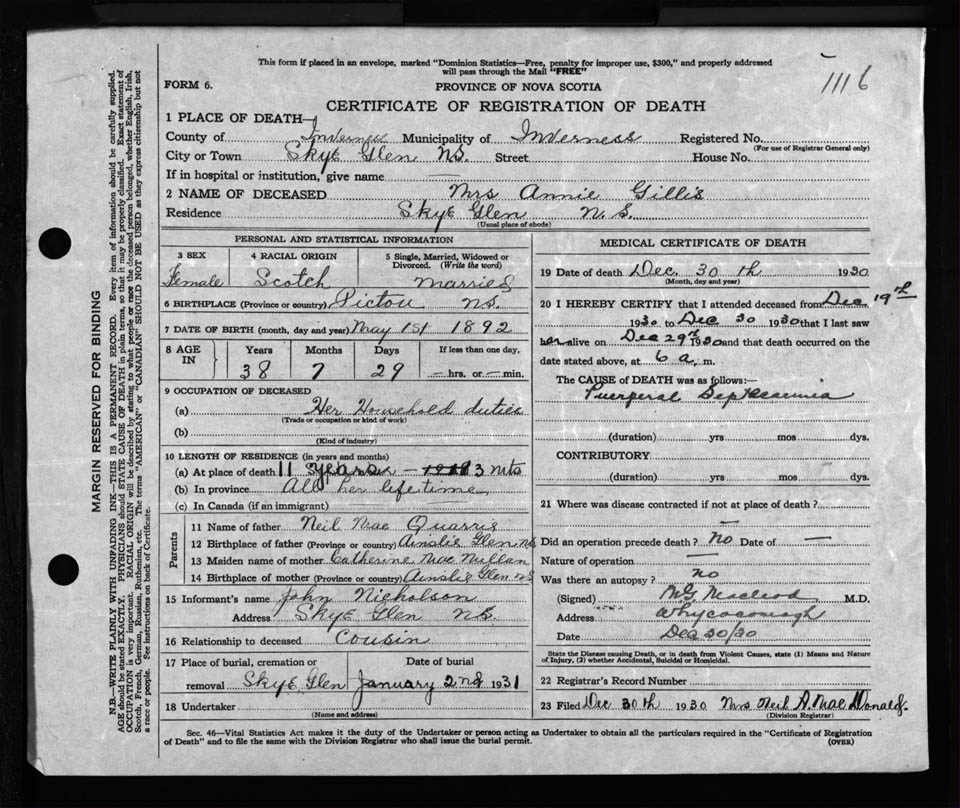 This form if placed in an envelope, marked "Dominion Statistics—Free, penalty for improper use, $300," and properly addressed
will pass through the Mail "FREE"
1116
FORM 6.
PROVINCE OF NOVA SCOTIA
CERTIFICATE OF REGISTRATION OF DEATH
1 PLACE OF DEATH—
County of Inverness Municipality of Inverness Registered No.
(For use of Registrar General only)
City or Town Skye Glen N.S. Street House No.
If in hospital or institution, give name —
2 NAME OF DECEASED Mrs Annie Gillis
Residence Skye Glen N. S.
(Usual place of abode)
PERSONAL AND STATISTICAL INFORMATION
3 SEX 4 RACIAL ORIGIN 5 Single, Married, Widowed or
Divorced. (Write the word)
Female Scotch Married
6 BIRTHPLACE (Province or country) Pictou N.S.
7 DATE OF BIRTH (month, day and year) May 1st 1892
8 AGE IN Years Months Days If less than one day,
38 7 29 — hrs. or — min.
9 OCCUPATION OF DECEASED
(a) Her Household duties
(Trade or occupation or kind of work)
(b)
(Kind of industry)
10 LENGTH OF RESIDENCE (in years and months)
(a) At place of death 11 years — 3 mts
(b) In province All her life time
(c) In Canada (if an immigrant) —
Parents
11 Name of father Neil Mac Quarrie
12 Birthplace of father (Province or country) Ainslie Glen N.S
13 Maiden name of mother Catherine Mac Millan
14 Birthplace of mother (Province or country) Ainslie Glen N.S
15 Informant's name John Nicholson
Address Skye Glen N.S.
16 Relationship to deceased Cousin
17 Place of burial, cremation or Date of burial
removal Skye Glen January 2nd 1931
18 Undertaker
(Name and address)
MEDICAL CERTIFICATE OF DEATH
19 Date of death Dec. 30 th 1930
(Month, day and year)
20 I HEREBY CERTIFY that I attended deceased from Dec 19th
1930 to Dec 30 1930 that I last saw
her alive on Dec 29th 1930 and that death occurred on the
date stated above, at 6 a. m.
The CAUSE of DEATH was as follows:—
Puerperal Septicaemia
(duration) yrs mos dys.
CONTRIBUTORY
(duration) yrs. mos dys.
21 Where was disease contracted if not at place of death?
—
Did an operation precede death? No Date of —
Nature of operation —
Was there an autopsy? no
(Signed) MG Macleod M.D.
Address Whycocomagh
Date Dec 30/30
State the Disease causing Death, or in death from Violent Causes, state (1) Means and Nature
of Injury, (2) whether Accidental, Suicidal or Homicidal.
22 Registrar's Record Number
23 Filed Dec 30th 1930 Mrs Neil A. Mac Donald.
(Division Registrar)
Sec. 46—Vital Statistics Act makes it the duty of the Undertaker or person acting as Undertaker to obtain all the particulars required in the "Certificate of Registration
of Death" and to file the same with the Division Registrar who shall issue the burial permit.
(OVER)
MARGIN RESERVED FOR BINDING
N.B.—WRITE PLAINLY WITH UNFADING INK—THIS IS A PERMANENT RECORD. Every item of information should be carefully supplied.
AGE should be stated EXACTLY. PHYSICIANS should STATE CAUSE OF DEATH in plain terms, so that it may be properly classified. Exact statement of
OCCUPATION is very important. RACIAL ORIGIN will be described by stating to what people or race the deceased person belonged, whether English, Irish,
Scotch, French, German, Russian, Ruthenian, etc. The terms "AMERICAN" or "CANADIAN" SHOULD NOT BE USED as they express citizenship but not
a race or people. See instructions on back of Certificate.